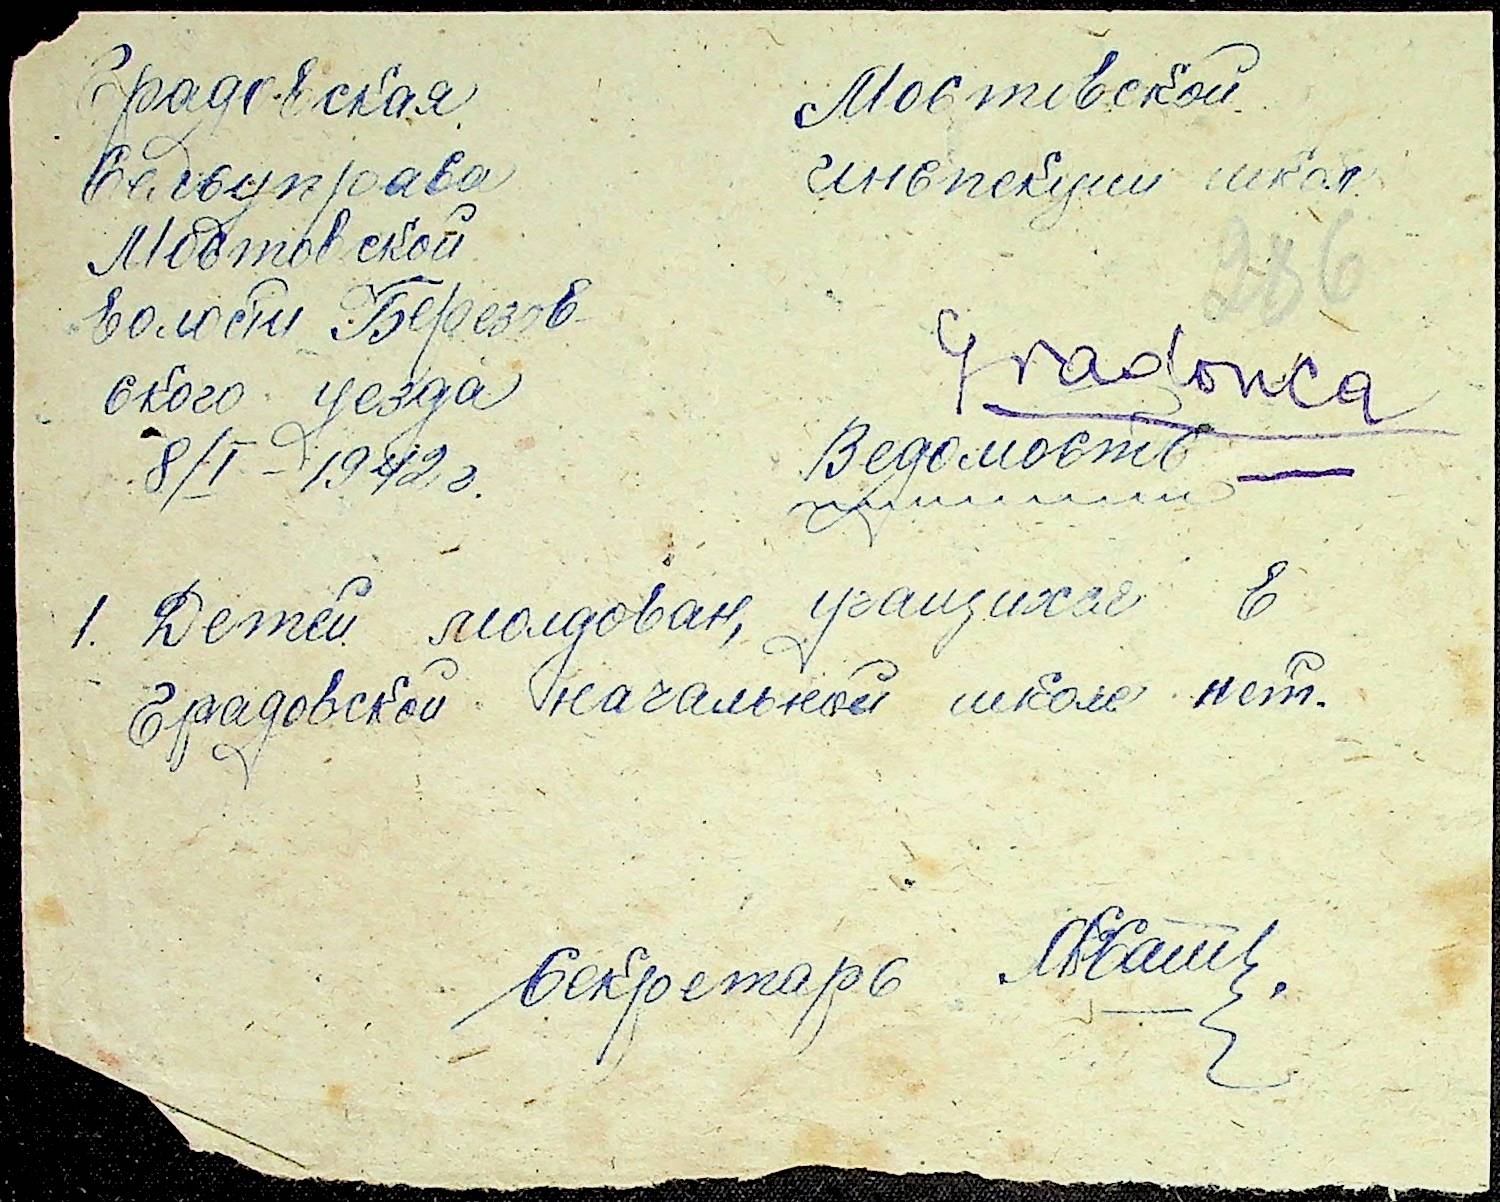 Градовская
Сельуправа
Мостовской
волости Березов-
ского уезда
8/I - 1942 г.
Мостовской
инспекции школ
286
Gradonca
Ведомость
1. Детей молдован, учащихся в
Градовской начальной школе нет.
Секретарь